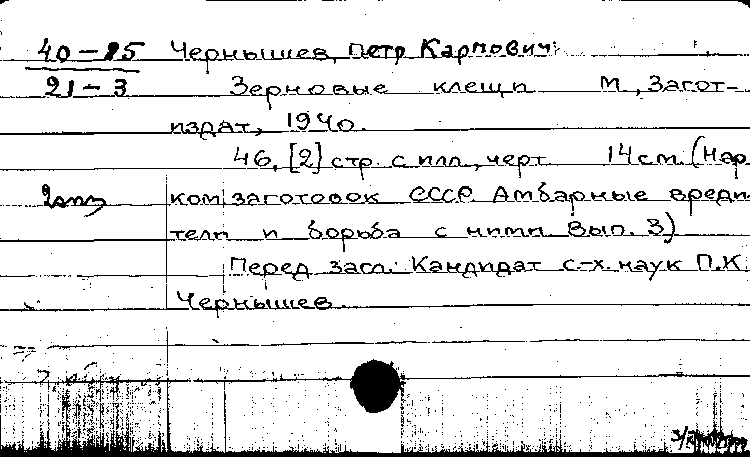 40-85 Чернышев, Петр Карпович.
21-3 Зерновые клещи М., Загот-
издат, 1940.
46, [2] стр. с илл., черт. 14 см. (Нар
2 экз ком. заготовок СССР. Амбарные вреди-
тели и борьба с ними. Вып. 3)
Перед загл.: Кандидат с-х. наук П.К.
Чернышев.